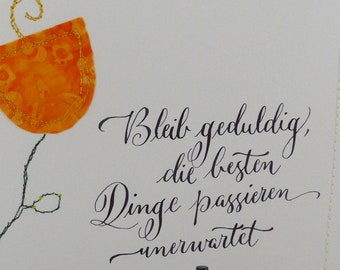 Bleib geduldig,
die besten
Dinge passieren
unerwartet